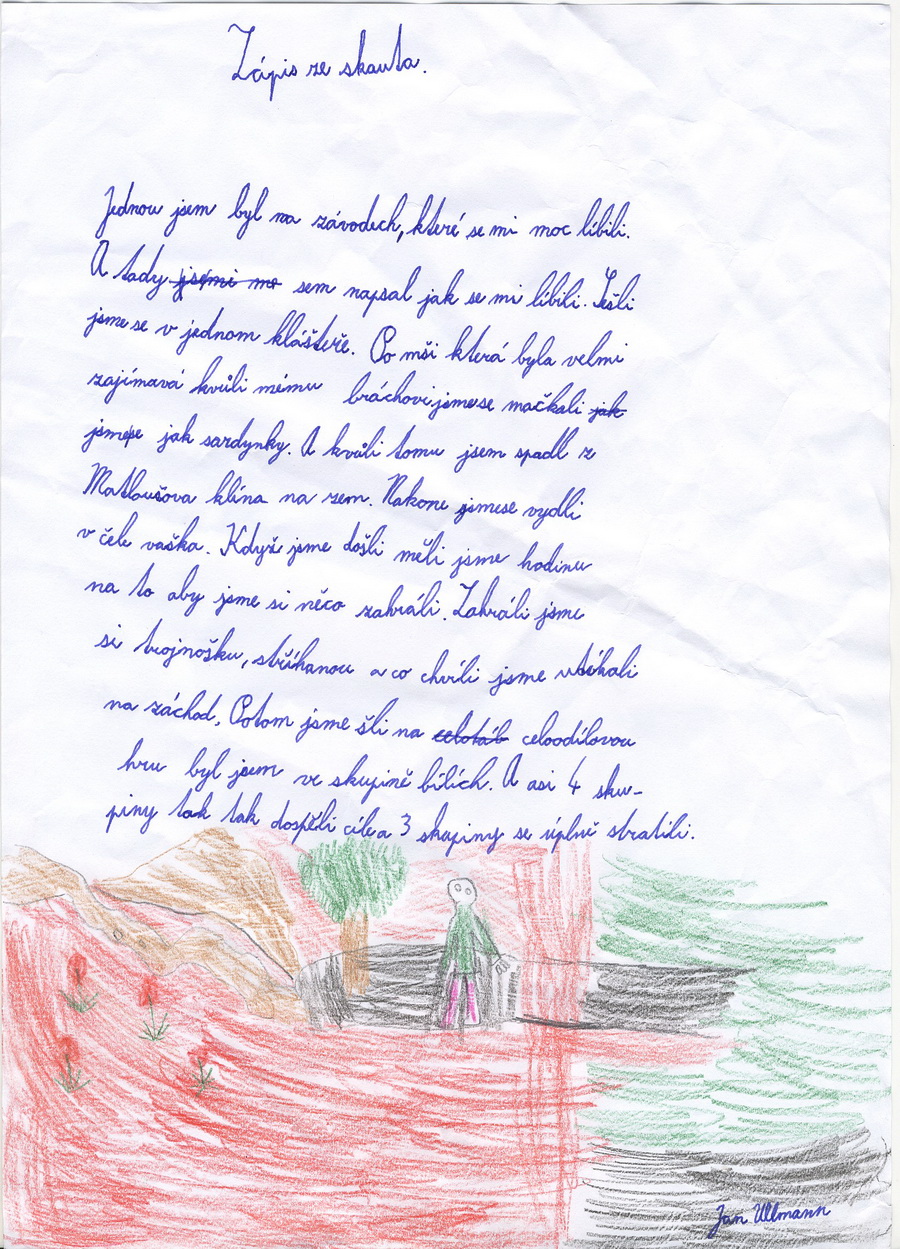 Zápis ze skauta.
Jednou jsem byl na závodech, které se mi moc líbili.
A tady jsemi mo sem napsal jak se mi líbili. Sešli
jsme se v jednom klášteře. Po mši která byla velmi
zajímavá kvůli mému bráchovi jsmese mačkali jak
jsmese jak sardynky. A kvůli tomu jsem spadl z
Matloušova klína na zem. Nakone jsmese vydli
v čele vaška. Když jsme došli měli jsme hodinu
na to aby jsme si něco zahráli. Zahráli jsme
si trojnošku, stříhanou a co chvíli jsme utíkali
na záchod. Potom jsme šli na celotáb celoodílovou
hru byl jsem ve skupině bílích. A asi 4 sku-
piny tak tak dospěli cíle a 3 skupiny se úplně stratili.
Jan Ullmann